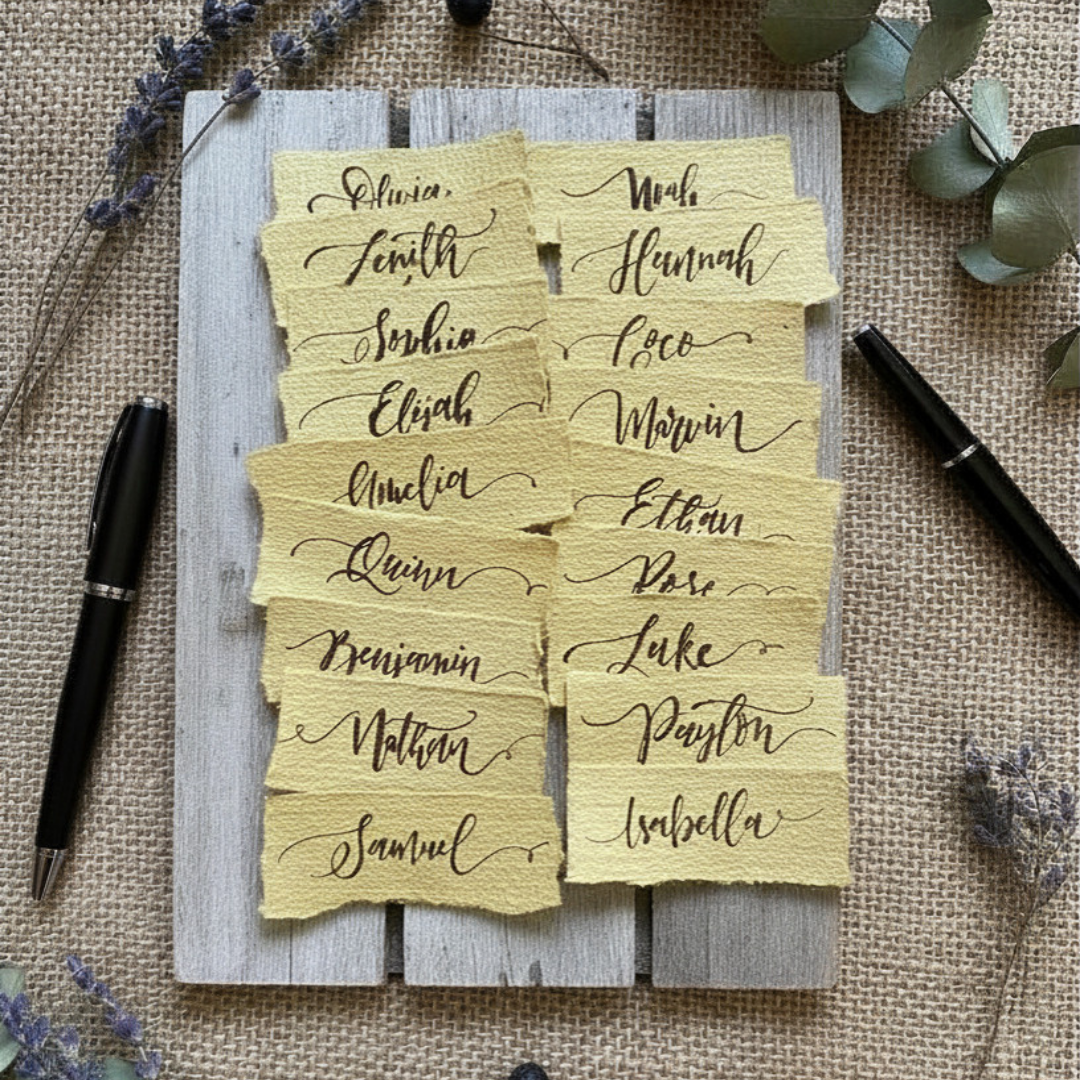 Olivia
Noah
Zenith
Hannah
Sophia
Coco
Elijah
Marvin
Amelia
Ethan
Quinn
Rose
Benjamin
Luke
Nathan
Payton
Samuel
Isabella